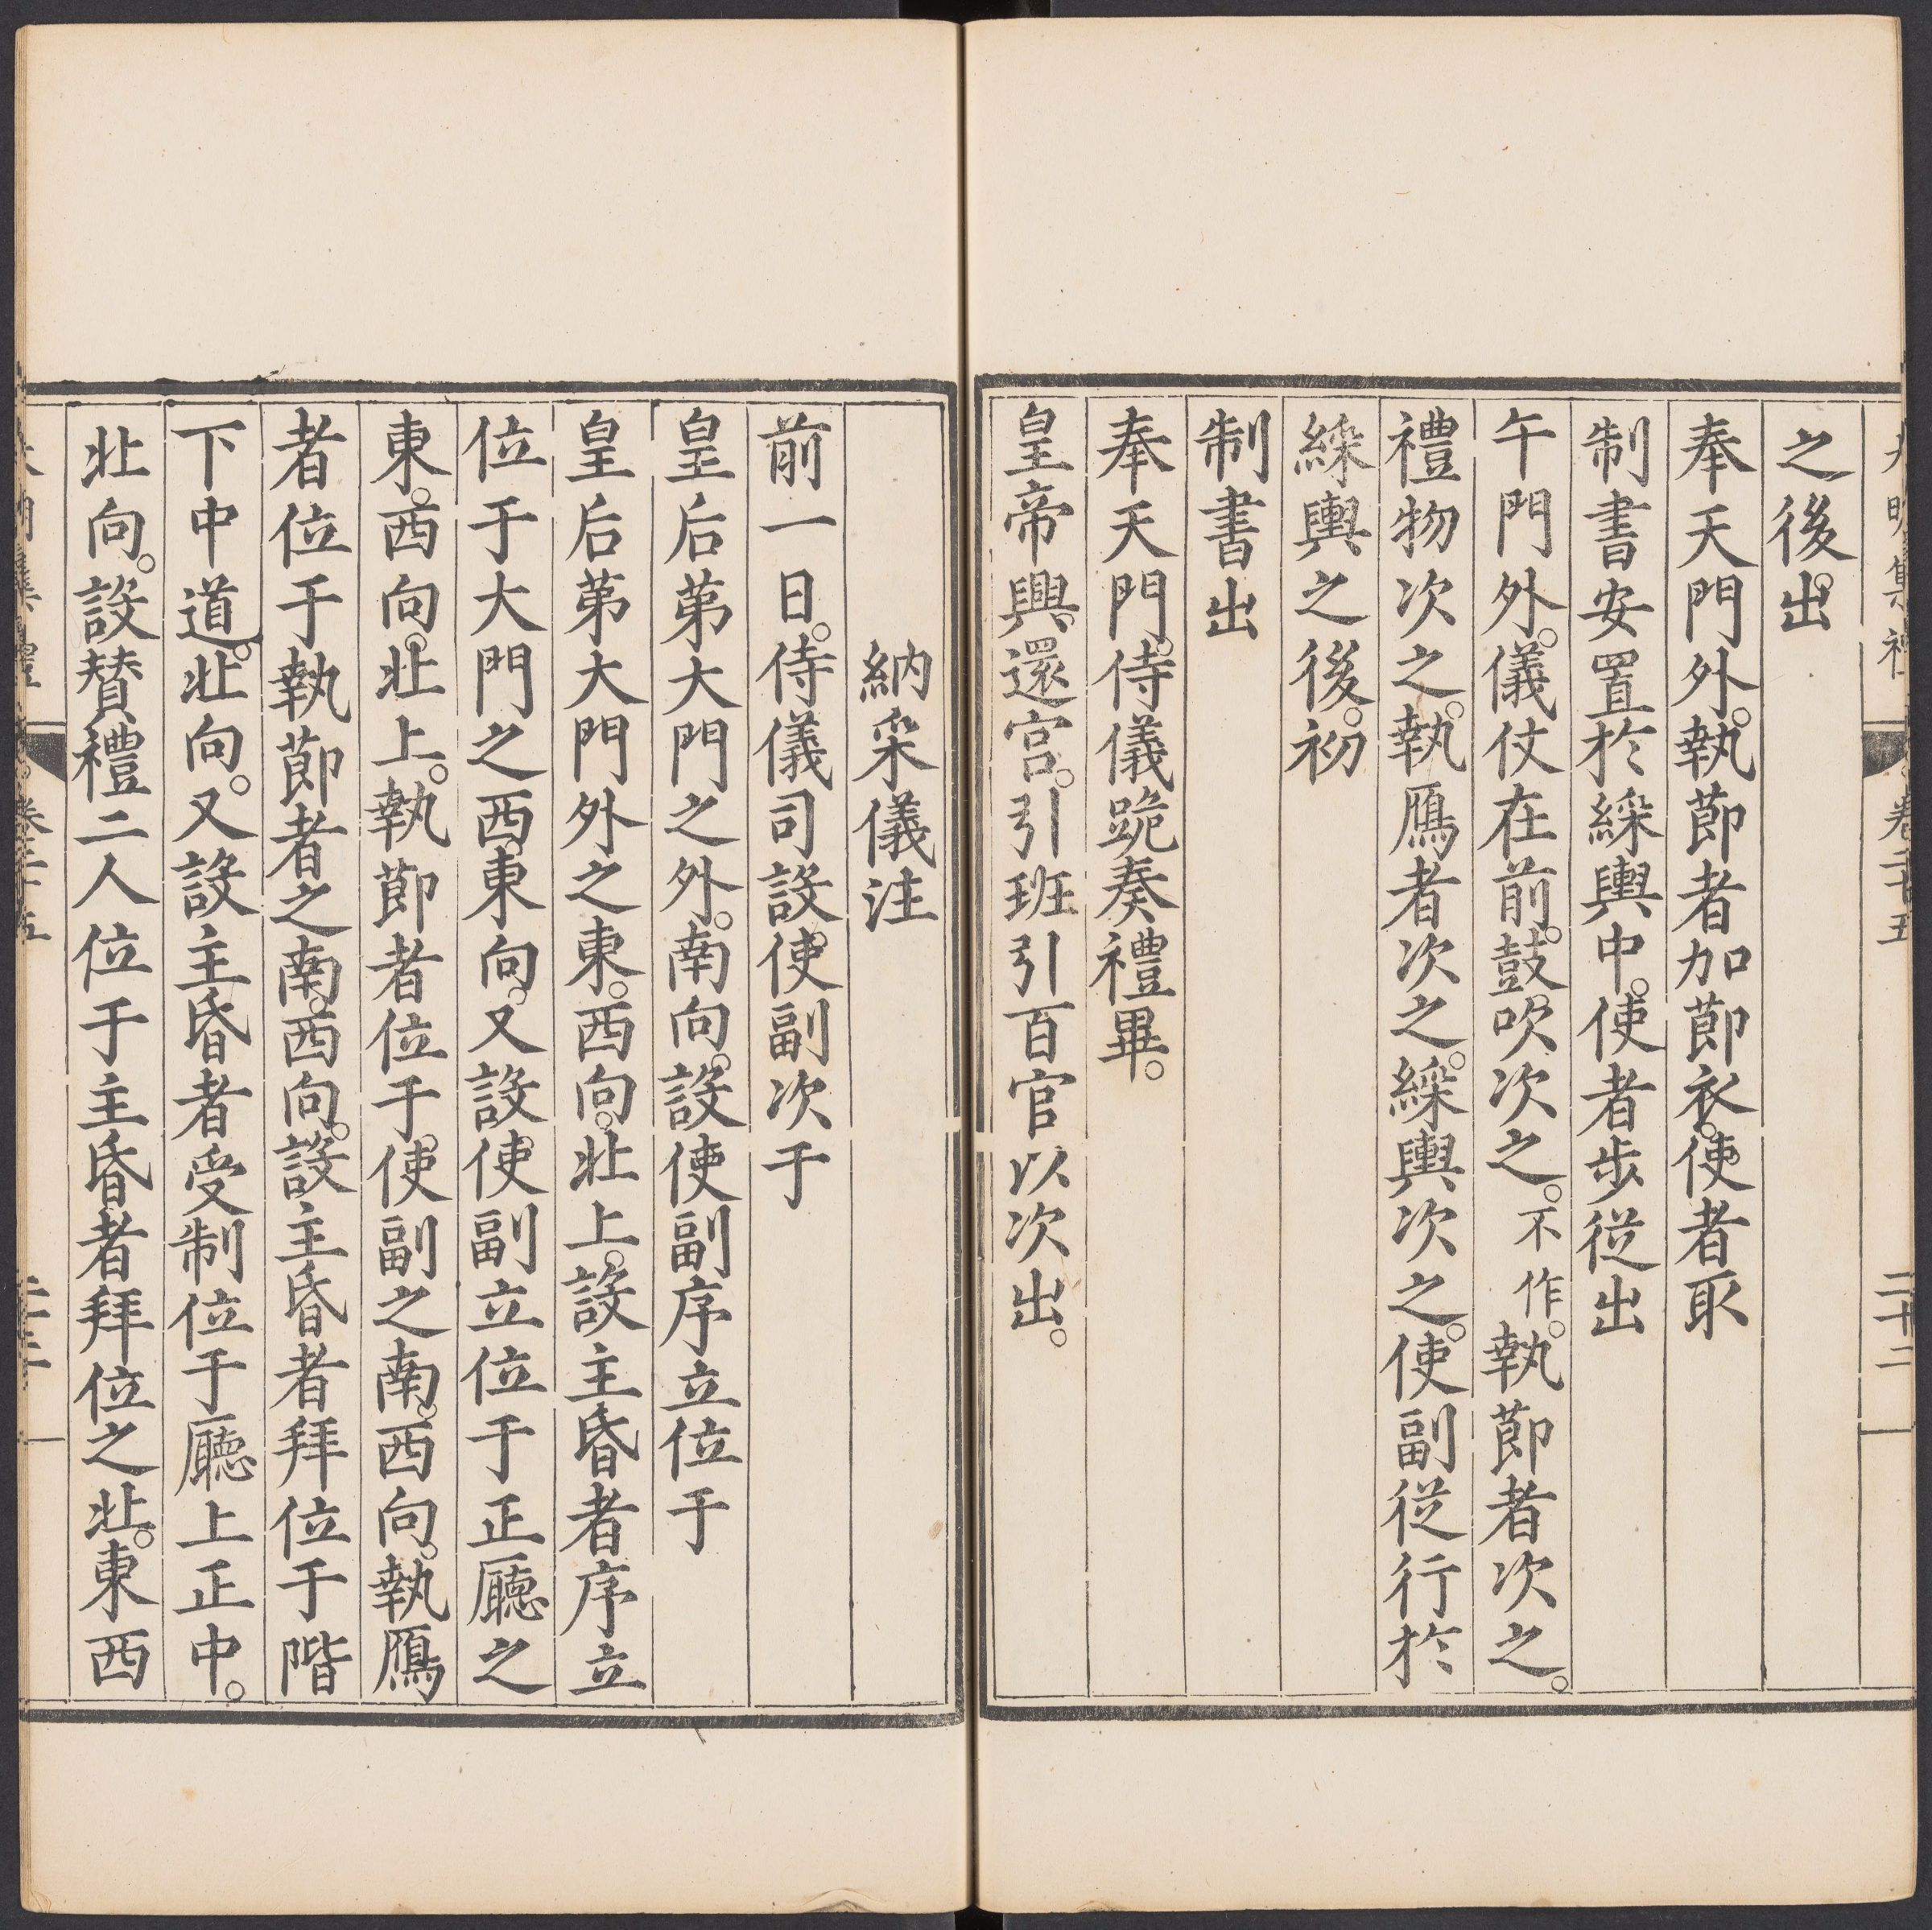 大明集禮 卷二十五 二十二
之後。出
奉天門外。執節者加節衣。使者取
制書安置於綵輿中。使者步從出
午門外。儀仗在前。鼓吹次之。不作。執節者次之。
禮物次之。執鴈者次之。綵輿次之。使副從行於
綵輿之後。初
制書出
奉天門。侍儀跪奏禮畢。
皇帝興。還宮。引班引百官以次出。
納采儀注
前一日。侍儀司設使副次于
皇后第大門之外。南向。設使副序立位于
皇后第大門外之東。西向。北上。設主昏者序立
位于大門之西。東向。又設使副立位于正廳之
東。西向。北上。執節者位于使副之南。西向。執鴈
者位于執節者之南。西向。設主昏者拜位于階
下中道。北向。又設主昏者受制位于廳上正中。
北向。設贊禮二人位于主昏者拜位之北。東西